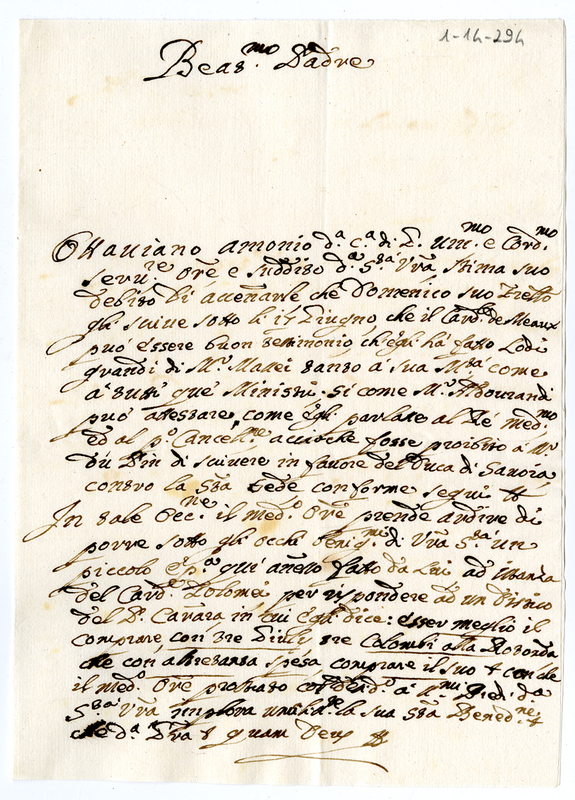 1-14-294
Beat.mo Padre
Ottaviano Antonio d.a C.a di um.mo e
serv.re Ore e Suddito d.a S.ta Vra stima suo
debito di accenarle che Domenico suo
gli scrive sotto li 17 Giugno, che il Card. de Meaux
può essere buon testimonio, ch'egli ha fatto Lodi
grandi di M.r Massei tanto a sua M.tà come
a' tutti quei Ministri. Si come M.r Aldourandi
può attestare, come egli parlato al Ré med.mo
ed al p.o Cancell.re acciochè fosse proibito a M.r
du Pin di scrivere in favore del Duca di Savoia
contro la S.ta Sede conforme seguì
In tale occ.ne il med.o Ore prende ardire di
porre sotto gli occhi benig.mi di Vra S.tà un
piccolo qui aneso fatto da Lui ad istanza
del Card. Tolomei per rispondere ad un Distico
del P. Carrara in cui egli dice: esser meglio il
comprare con tre Giulij tre Colombi alla Rotonda
che con altretanta spesa comprare il suo che
il med.o Ore prostrato a' Piedi da
S.tà Vra implora la sua S.ta Bened.ne
che d.a Vra quam Deus